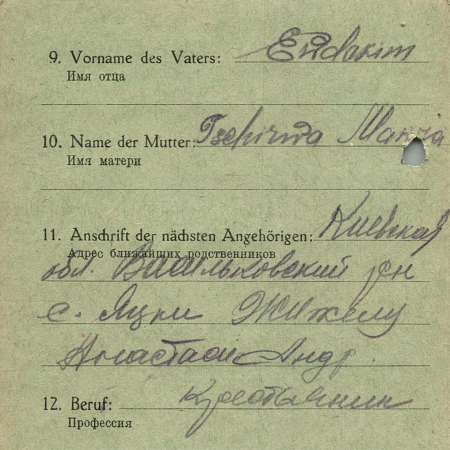 9. Vorname des Vaters: Evdokim
Имя отца
10. Name der Mutter: Tschirwa Marria
Имя матери
11. Anschrift der nächsten Angehörigen: Киевская
Адрес ближайших родственников
обл. Васильковский рн
с. Яцки
Анастаси Андр
12. Beruf: Крестьянин
Профессия